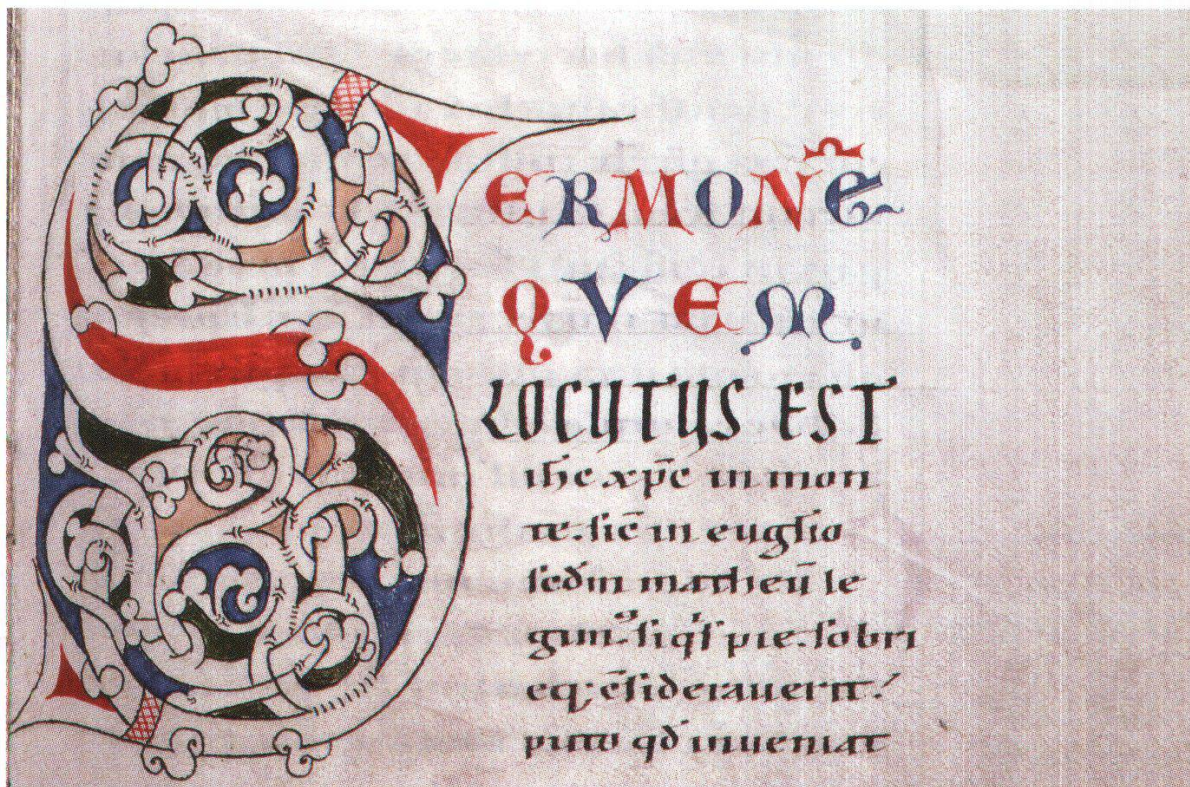 SERMONẼ
QVEM
LOCUTUS EST
ih̅c xp̅c in mon
te. sic̅ in eugl̅io
scd̅m matheu̅ le
gim᷒. siqͥs pie. sobri
eq; c̅sideraverit.
puto qd̅ inveniat